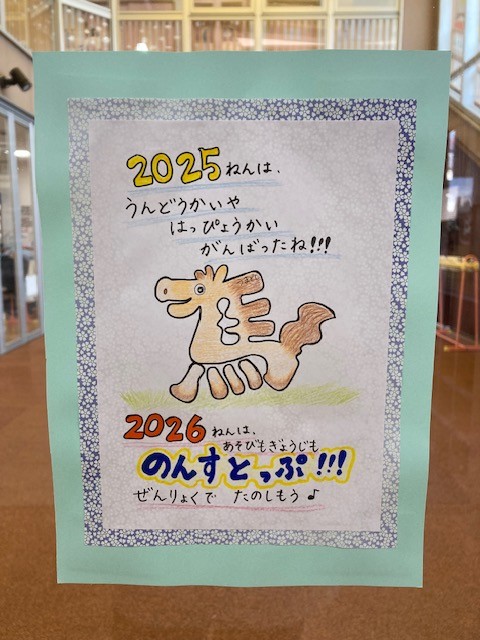 2025ねんは、
うんどうかいや
はっぴょうかい
がんばったね!!!
2026ねんは、
あそびもぎょうじも
のんすとっぷ!!!
ぜんりょくで たのしもう♪